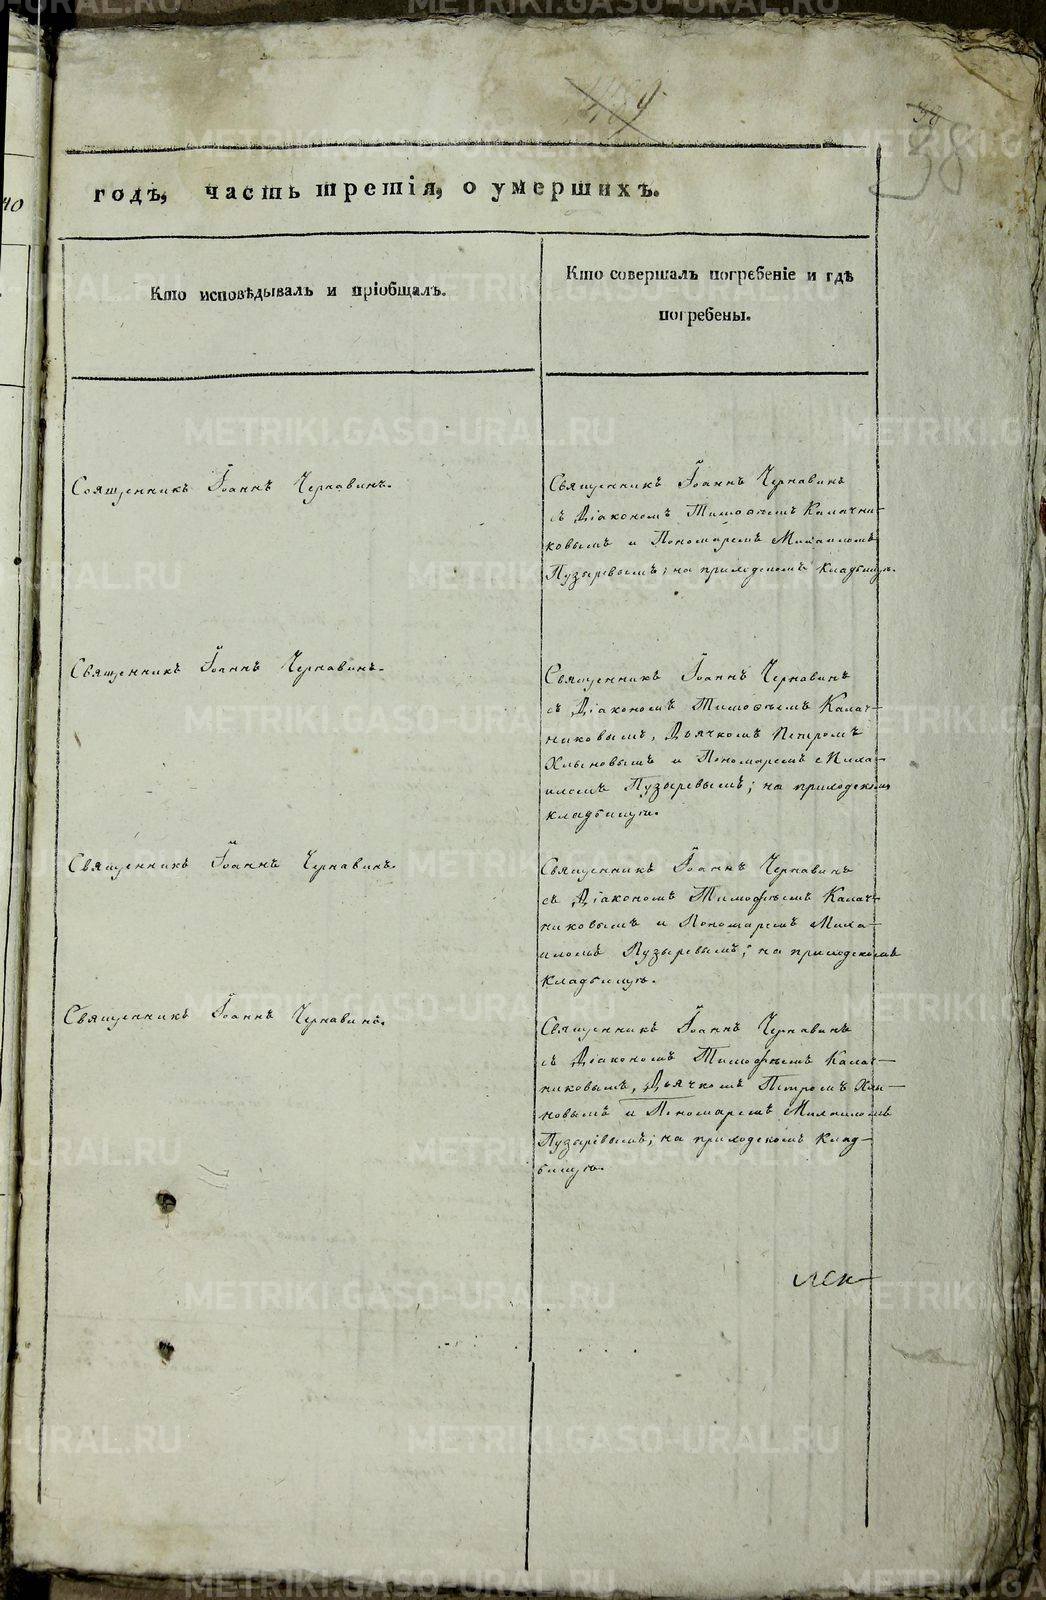 38
38
годъ, часть третія, о умершихъ.
Кто исповѣдывалъ и пріобщалъ.
Кто совершалъ погребеніе и гдѣ
погребены.
Священникъ Іоаннъ Чернавинъ.
Священникъ Іоаннъ Чернавинъ
съ Діакономъ Тимоѳеемъ Калачни-
ковымъ и Пономаремъ Михаиломъ
Пузыревымъ; на приходскомъ кладбищѣ.
Священникъ Іоаннъ Чернавинъ.
Священникъ Іоаннъ Чернавинъ
съ Діакономъ Тимоѳеемъ Калач-
никовымъ, Дьячкомъ Петромъ
Хлыновымъ и Пономаремъ Миха-
иломъ Пузыревымъ; на приходскомъ
кладбищѣ.
Священникъ Іоаннъ Чернавинъ.
Священникъ Іоаннъ Чернавинъ
съ Діакономъ Тимофеемъ Калач-
никовымъ и Пономаремъ Миха-
иломъ Пузыревымъ; на приходскомъ
кладбищѣ.
Священникъ Іоаннъ Чернавинъ.
Священникъ Іоаннъ Чернавинъ
съ Діакономъ Тимофеемъ Калач-
никовымъ, Дьячкомъ Петромъ Хлы-
новымъ и Пономаремъ Михаиломъ
Пузыревымъ; на приходскомъ клад-
бищѣ.
METRIKI.GASO-URAL.RU